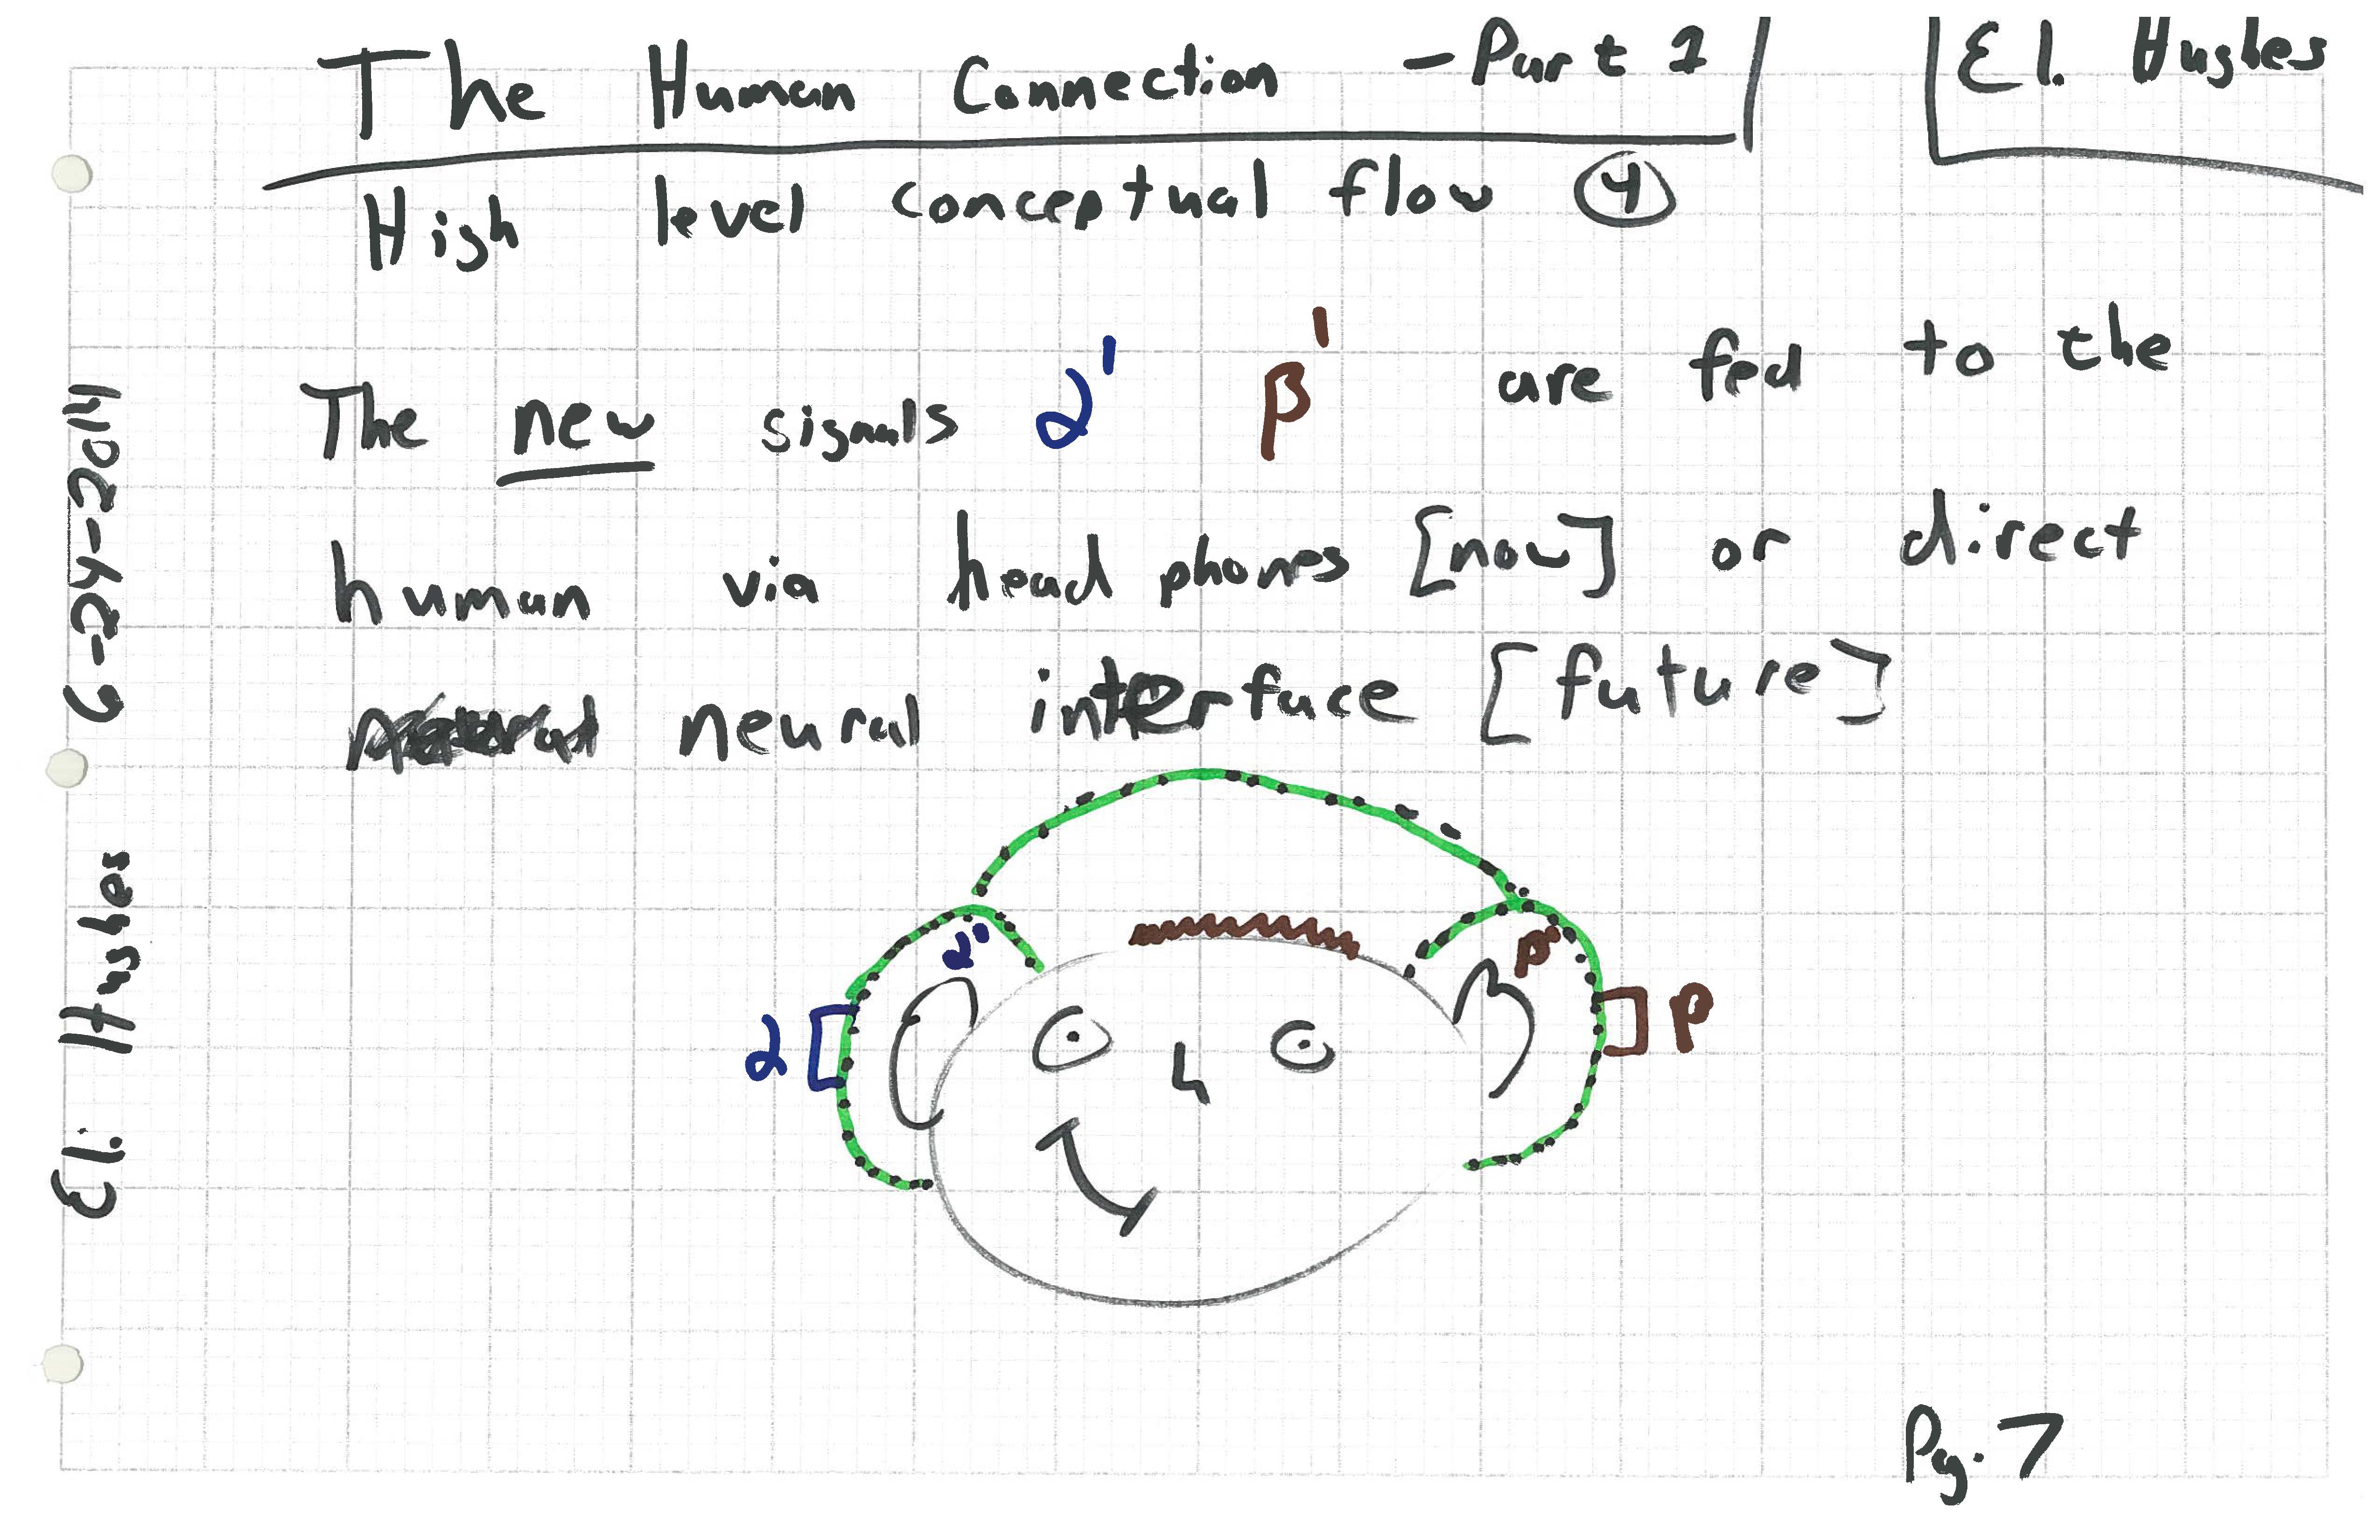 The Human Connection - Part 1
Eli Hughes
High level conceptual flow ④
The new signals α' β' are fed to the
human via head phones [now] or direct
neural interface [future]
α' β'
α β
Eli Hughes 6-24-2014
Pg. 7